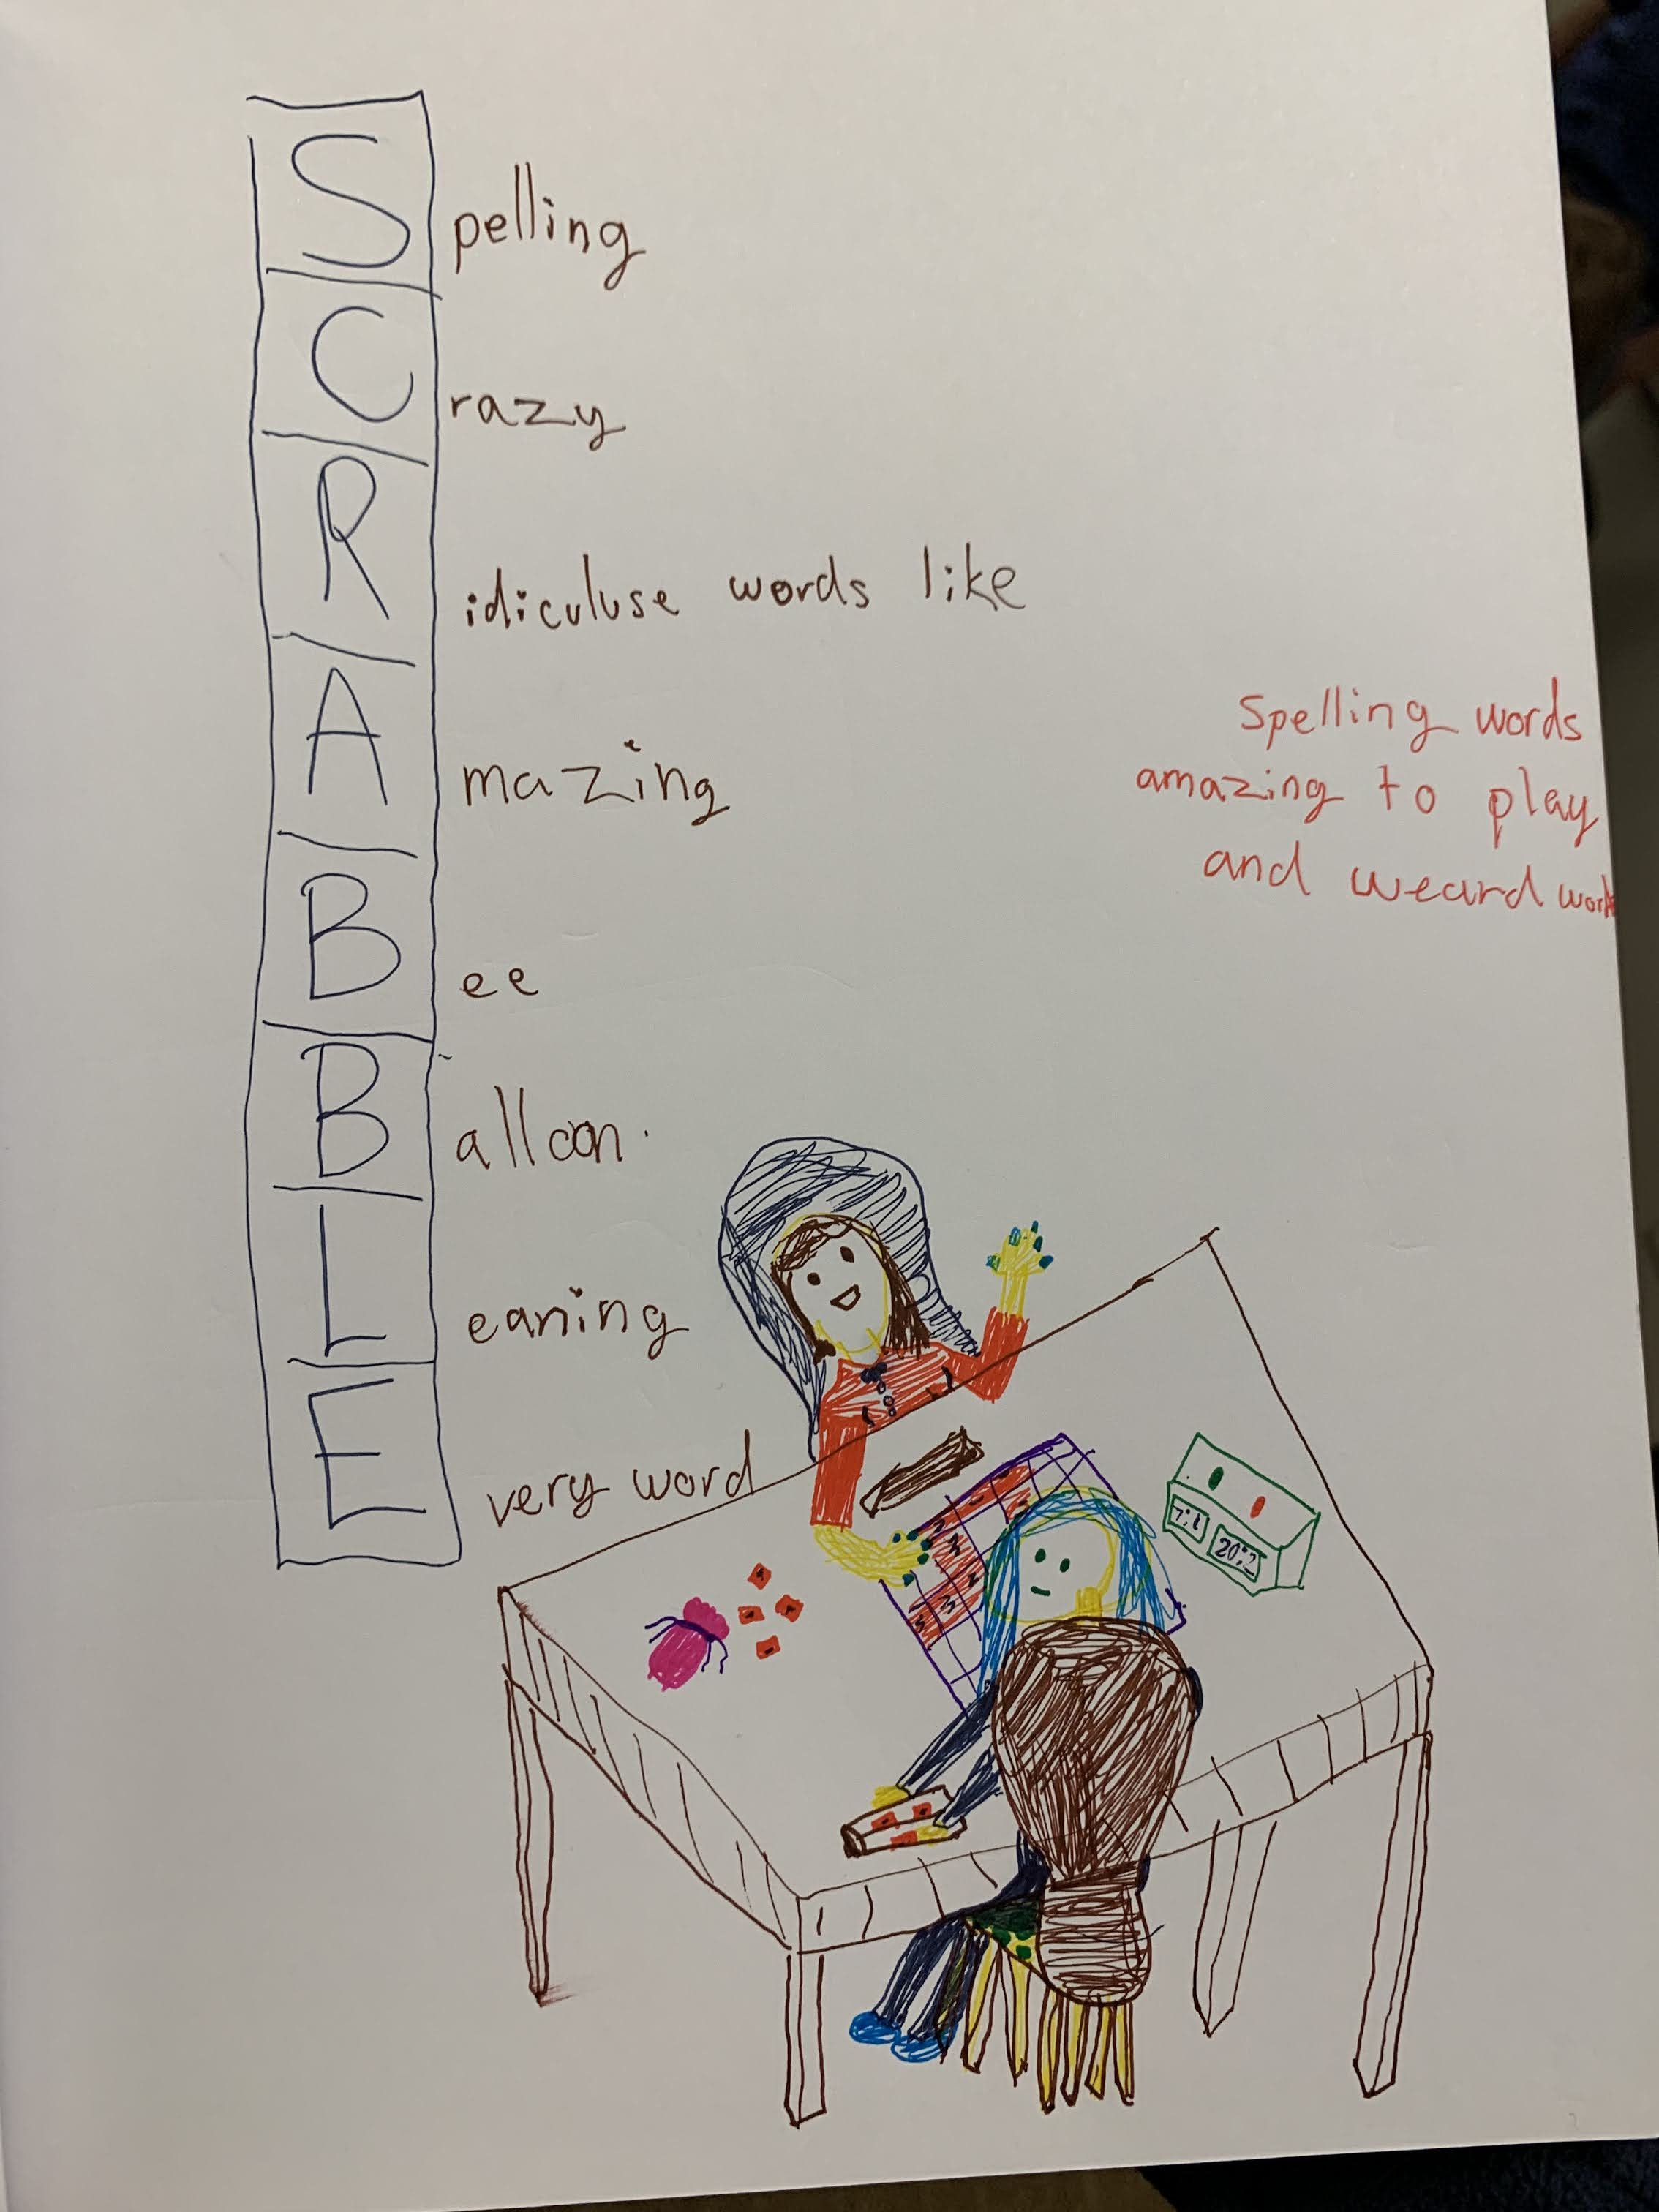 Spelling
Crazy
Ridiculuse words like
Amazing
Bee
Balloon
Leaning
Every word
Spelling words
amazing to play
and weard
20:2